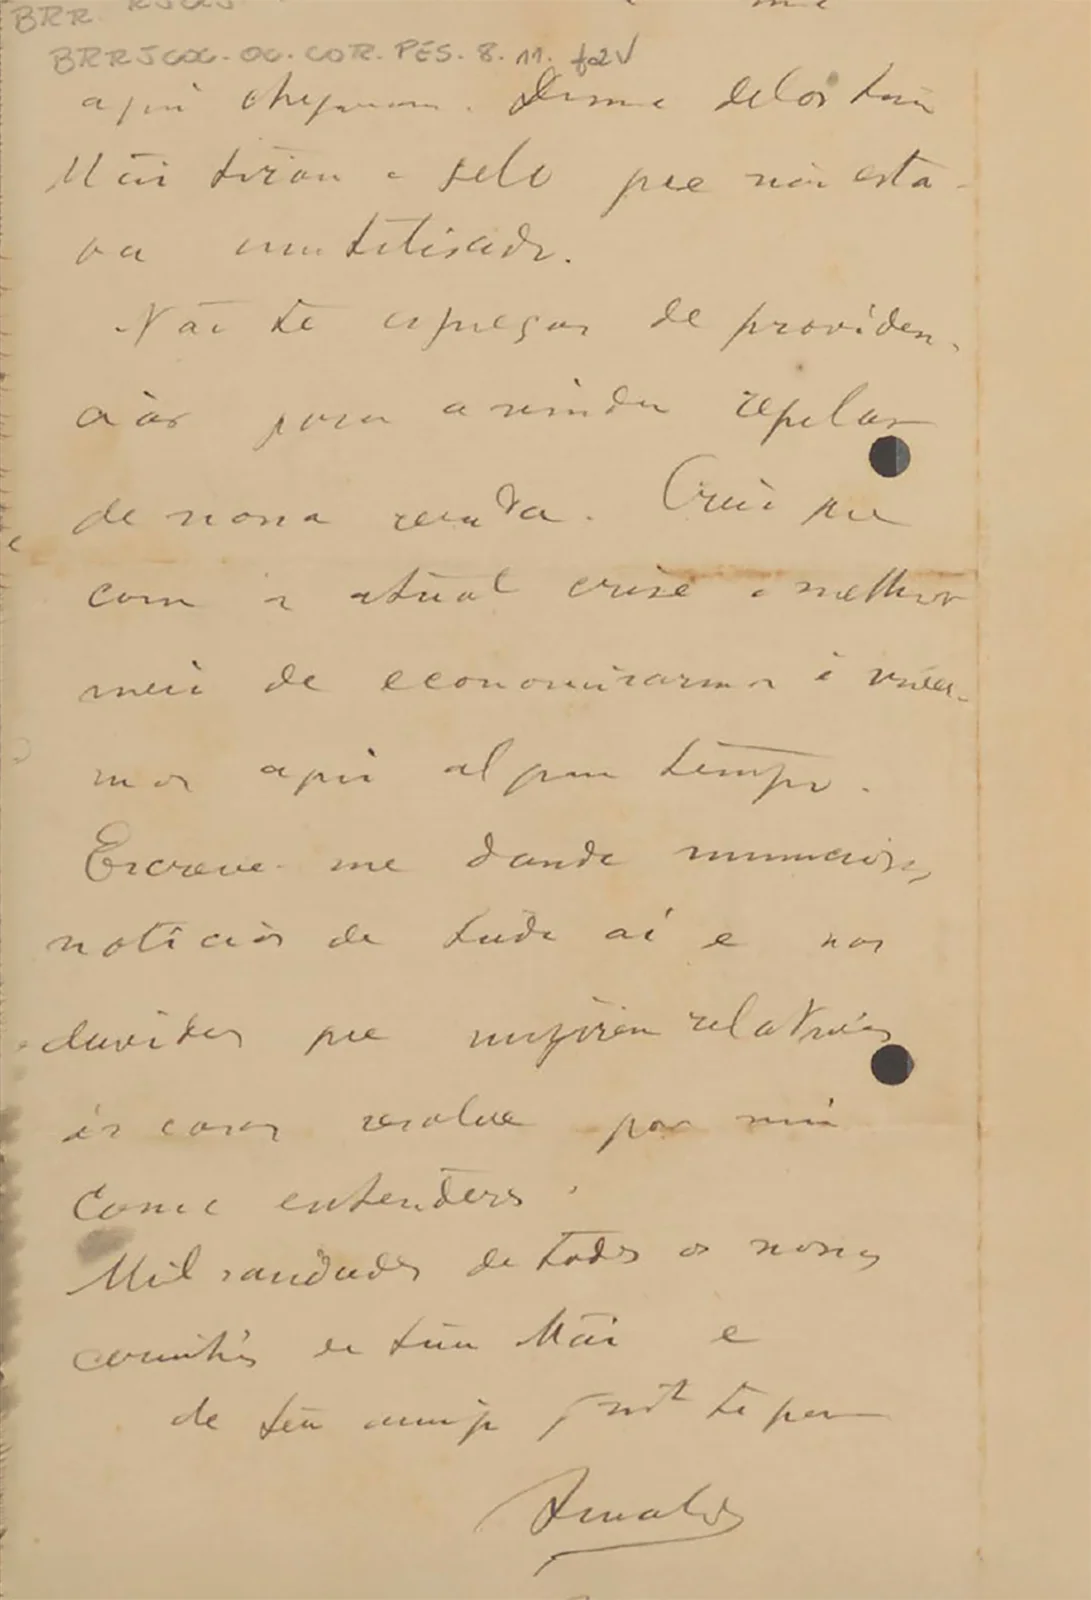 BRR
BRRJCOC. OC. COR. PES. 8. 11. f2V
aqui chegaram. De uma delas tua
Mãi tirou o selo que não esta-
va inutilisado.
Não te esqueças de providen-
cias para a vinda regular
de nossa renda. Creio que
com a atual crise o melhor
meio de economisarmos é viver-
mos aqui algum tempo.
Escreve-me dando minuciosas
noticias de tudo aí e nas
duvidas que surgirem relativas
ás casas resolve por mim
como entenderes.
Mil saudades de todos os nossos
de tua Mãi e
de teu amigo que te quer
Arnaldo